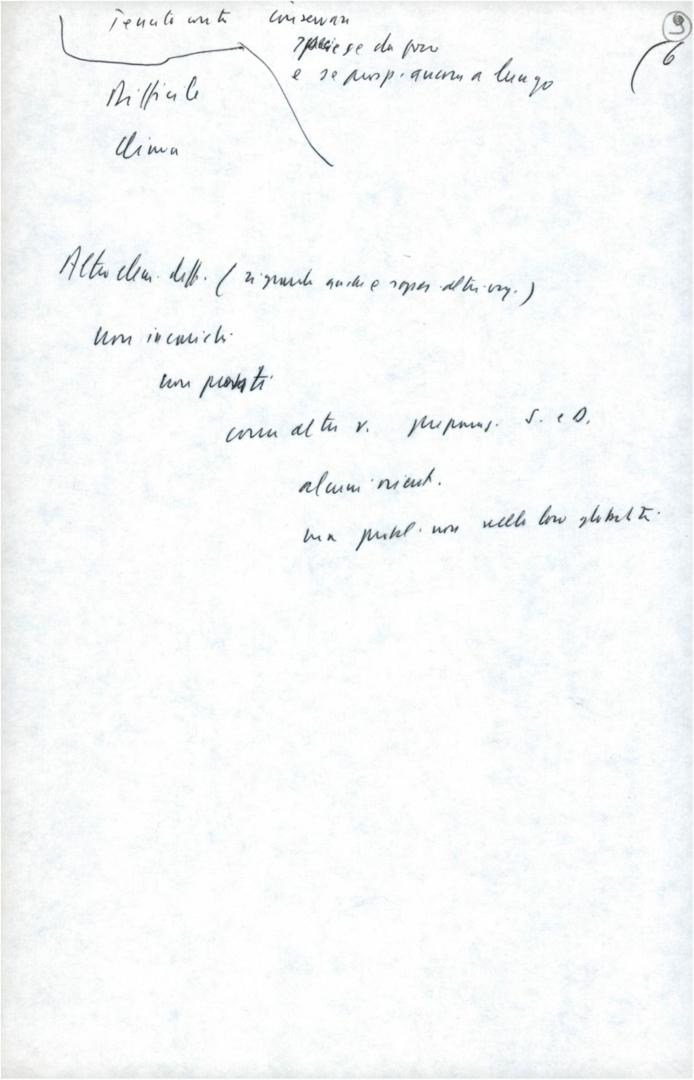 Tenuto conto conservan
specie se da poco
e se prosp. ancora a lungo
6
Difficile
Clima
Altro elem. diff. (riguarda anche e sopra altri org.)
non incarichi
non privati
come altre v. preparaz. S. e D.
alcuni orient.
ma probl. non nella loro globalità